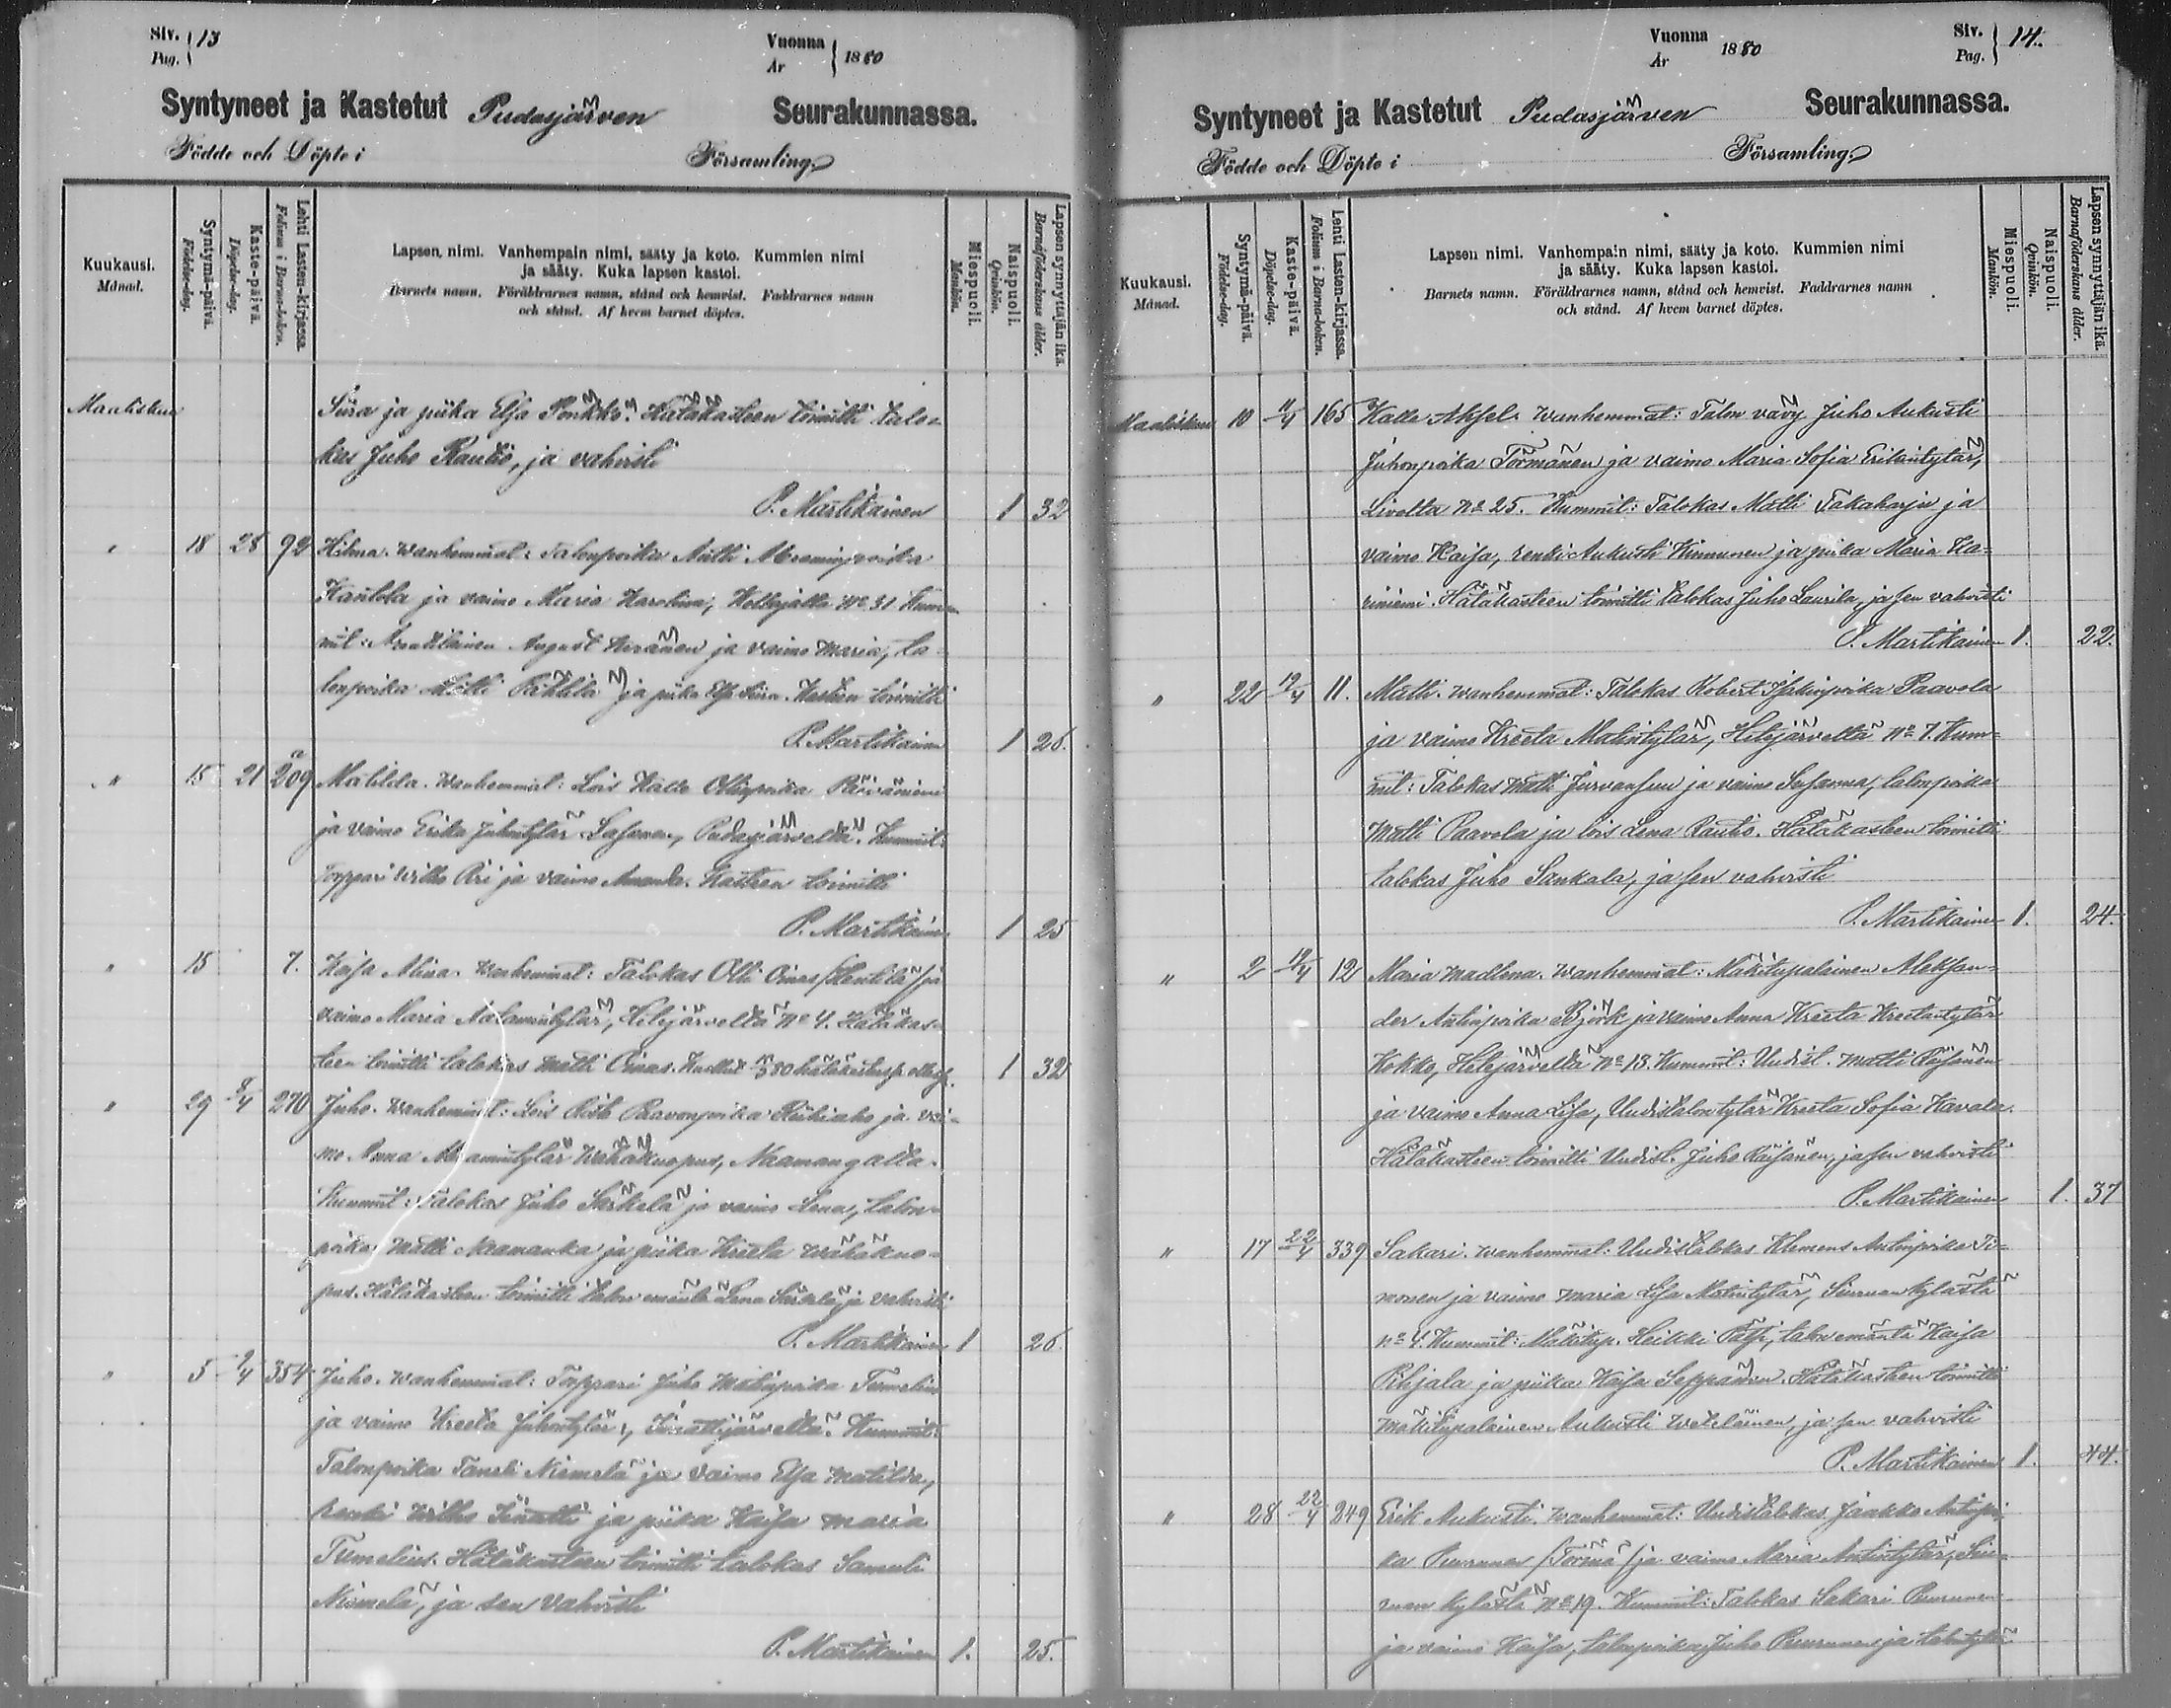 Siv. 13
Pag.
Vuonna 1880
År
Syntyneet ja Kastetut Pudasjärven Seurakunnassa.
Födde och Döpte i Församling.
Kuukausi.
Månad.
Syntymä-päivä.
Födelse-dag.
Kaste-päivä.
Döpelse-dag.
Lehti Lasten-kirjassa.
Folium i Barna-boken.
Lapsen nimi. Vanhempain nimi, sääty ja koto. Kummien nimi
ja sääty. Kuka lapsen kastoi.
Barnets namn. Föräldrarnes namn, stånd och hemvist. Faddrarnes namn
och stånd. Af hvem barnet döptes.
Miespuoli.
Mankön.
Naispuoli.
Qvinkön.
Lapsen synnyttäjän ikä.
Barnaföderskans ålder.
Maaliskuu Siira ja piika Elsa Ponkko. Hätäkasteen toimitti talo-
kas Juho Rautio, ja vahvisti
P. Martikainen 1 32
" 18 28 92 Hilma. Wanhemmat: Talonpoika Antti Abraminpoika
Kantola ja vaimo Maria Karolina, No 31 Kum-
mit: August ja vaimo Maria, ta-
lonpoika Matti ja piika Elsa Siira. Kasteen toimitti
P. Martikainen 1 26.
" 15 21 209 Matilda. Wanhemmat: Lois Kalle Ollinpoika Päiväniemi
ja vaimo Erika Juhontytär Sasanen, Pudasjärveltä. Kummit:
Torppari Wilho Piri ja vaimo Amanda. Kasteen toimitti
P. Martikainen 1 25
" 15 7. Kaisa Alina. Wanhemmat: Talokas Olli Oinas /Hentilä/ ja
vaimo Maria Aatamintytär, Hetejärveltä No 4. Hätäkas-
teen toimitti talokas Matti Oinas. 1 32
" 29 8/4 270 Juho. Wanhemmat: Lois Paavonpoika ja vai-
mo Anna Abramintytär Wähäkuopus, Naamangalta.
Kummit: Talokas Juho Särkelä ja vaimo Lena, talon-
poika Matti Naamanka ja piika Kreeta Wähäkuo-
pus. Hätäkasteen toimitti talon emäntä Lena Särkelä ja vahvisti
P. Martikainen 1 26.
" 5 9/4 354 Juho. Wanhemmat: Torppari Juho Matinpoika Tumelius
ja vaimo Kreeta Juhontytär, Iinattijärveltä. Kummit:
Talonpoika Taneli Niemelä ja vaimo Elsa Matilda,
renki Wilho Iinatti ja piika Kaisa Maria
Tumelius. Hätäkasteen toimitti talokas Samuli
Niemelä, ja sen vahvisti
P. Martikainen 1. 25.
Vuonna 1880
År
Siv. 14.
Pag.
Syntyneet ja Kastetut Pudasjärven Seurakunnassa.
Födde och Döpte i Församling.
Kuukausi.
Månad.
Syntymä-päivä.
Födelse-dag.
Kaste-päivä.
Döpelse-dag.
Lehti Lasten-kirjassa.
Folium i Barna-boken.
Lapsen nimi. Vanhempain nimi, sääty ja koto. Kummien nimi
ja sääty. Kuka lapsen kastoi.
Barnets namn. Föräldrarnes namn, stånd och hemvist. Faddrarnes namn
och stånd. Af hvem barnet döptes.
Miespuoli.
Mankön.
Naispuoli.
Qvinkön.
Lapsen synnyttäjän ikä.
Barnaföderskans ålder.
Maaliskuu 10 11/4 165 Kalle Aksel. Wanhemmat: Talon vävy Juho Aukusti
Juhonpoika Törmänen ja vaimo Maria Sofia Erikintytär,
Livolta No 25. Kummit: Talokas Matti Takaharju ja
vaimo Kaisa, renki Aukusti Kinnunen ja piika Maria Ha-
riniemi. Hätäkasteen toimitti talokas Juho Laurila, ja sen vahvisti
P. Martikainen 1. 22.
" 22 12/4 11. Matti. Wanhemmat: Talokas Robert Iisakinpoika Paavola
ja vaimo Kreeta Matintytär, Hetejärveltä No 7. Kum-
mit: Talokas Matti Jurvansuu ja vaimo Susanna, talonpoika
Matti Paavola ja lois Lena Rautio. Hätäkasteen toimitti
talokas Juho Sankala, ja sen vahvisti
P. Martikainen 1. 24.
" 2 12/4 12 Maria Madlena. Wanhemmat: Mäkitupalainen Aleksan-
der Antinpoika Björk ja vaimo Anna Kreeta Kreetantytär
Kokko, Hetejärveltä No 13. Kummit: Uudist. Matti Räisänen
ja vaimo Anna Lisa, Uudistalontytär Kreeta Sofia Kavala.
Hätäkasteen toimitti Uudist. Juho Räisänen, ja sen vahvisti
P. Martikainen 1. 37
" 17 22/4 339 Sakari. Wanhemmat: Uudistalokas Klemens Antinpoika Ti-
monen ja vaimo Maria Lisa Matintytär, Siuruan kylästä
No 4. Kummit: Mäkitup. Heikki Pätsi, talon emäntä Kaisa
Pihjala ja piika Kaisa Seppänen. Hätäkasteen toimitti
mäkitupalainen Aukusti Weteläinen, ja sen vahvisti
P. Martikainen 1. 44.
" 28 22/4 249 Erik Aukusti. Wanhemmat: Uudistalokas Jaakko Antinpoi-
ka Puurunen /Törmä/ ja vaimo Maria Antintytär, Siu-
ruan kylästä No 19. Kummit: Talokas Sakari Puurunen
ja vaimo Kaisa, talonpoika Juho Puurunen ja talontytär